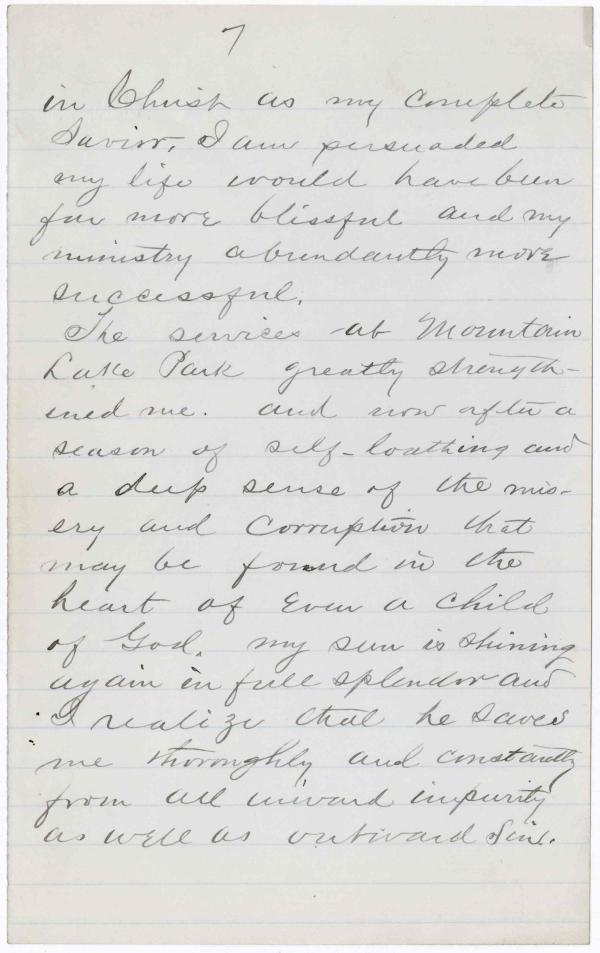 7
in Christ as my complete
Savior, I am persuaded
my life would have been
far more blissful and my
ministry abundantly more
successful.
The services at Mountain
Lake Park greatly strength-
ened me. and now after a
season of self-loathing and
a deep sense of the mis-
ery and corruption that
may be found in the
heart of even a child
of God. my sun is shining
again in full splendor and
I realize that he saves
me thoroughly and constantly
from all inward impurity
as well as outward sin.